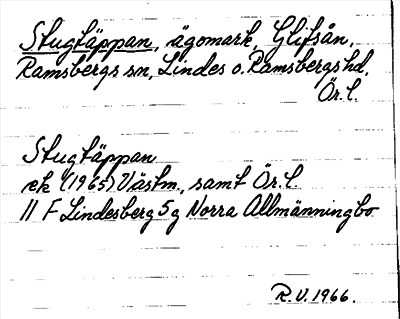 Stugtäppan, ägomark, Glifsån,
Ramsbergs sn, Lindes o. Ramsbergs hd,
Ör. l.
Stugtäppan
ek (1965) Västm., samt Ör. l.
11 F Lindesberg 5 g Norra Allmänningbo
R.V. 1966.